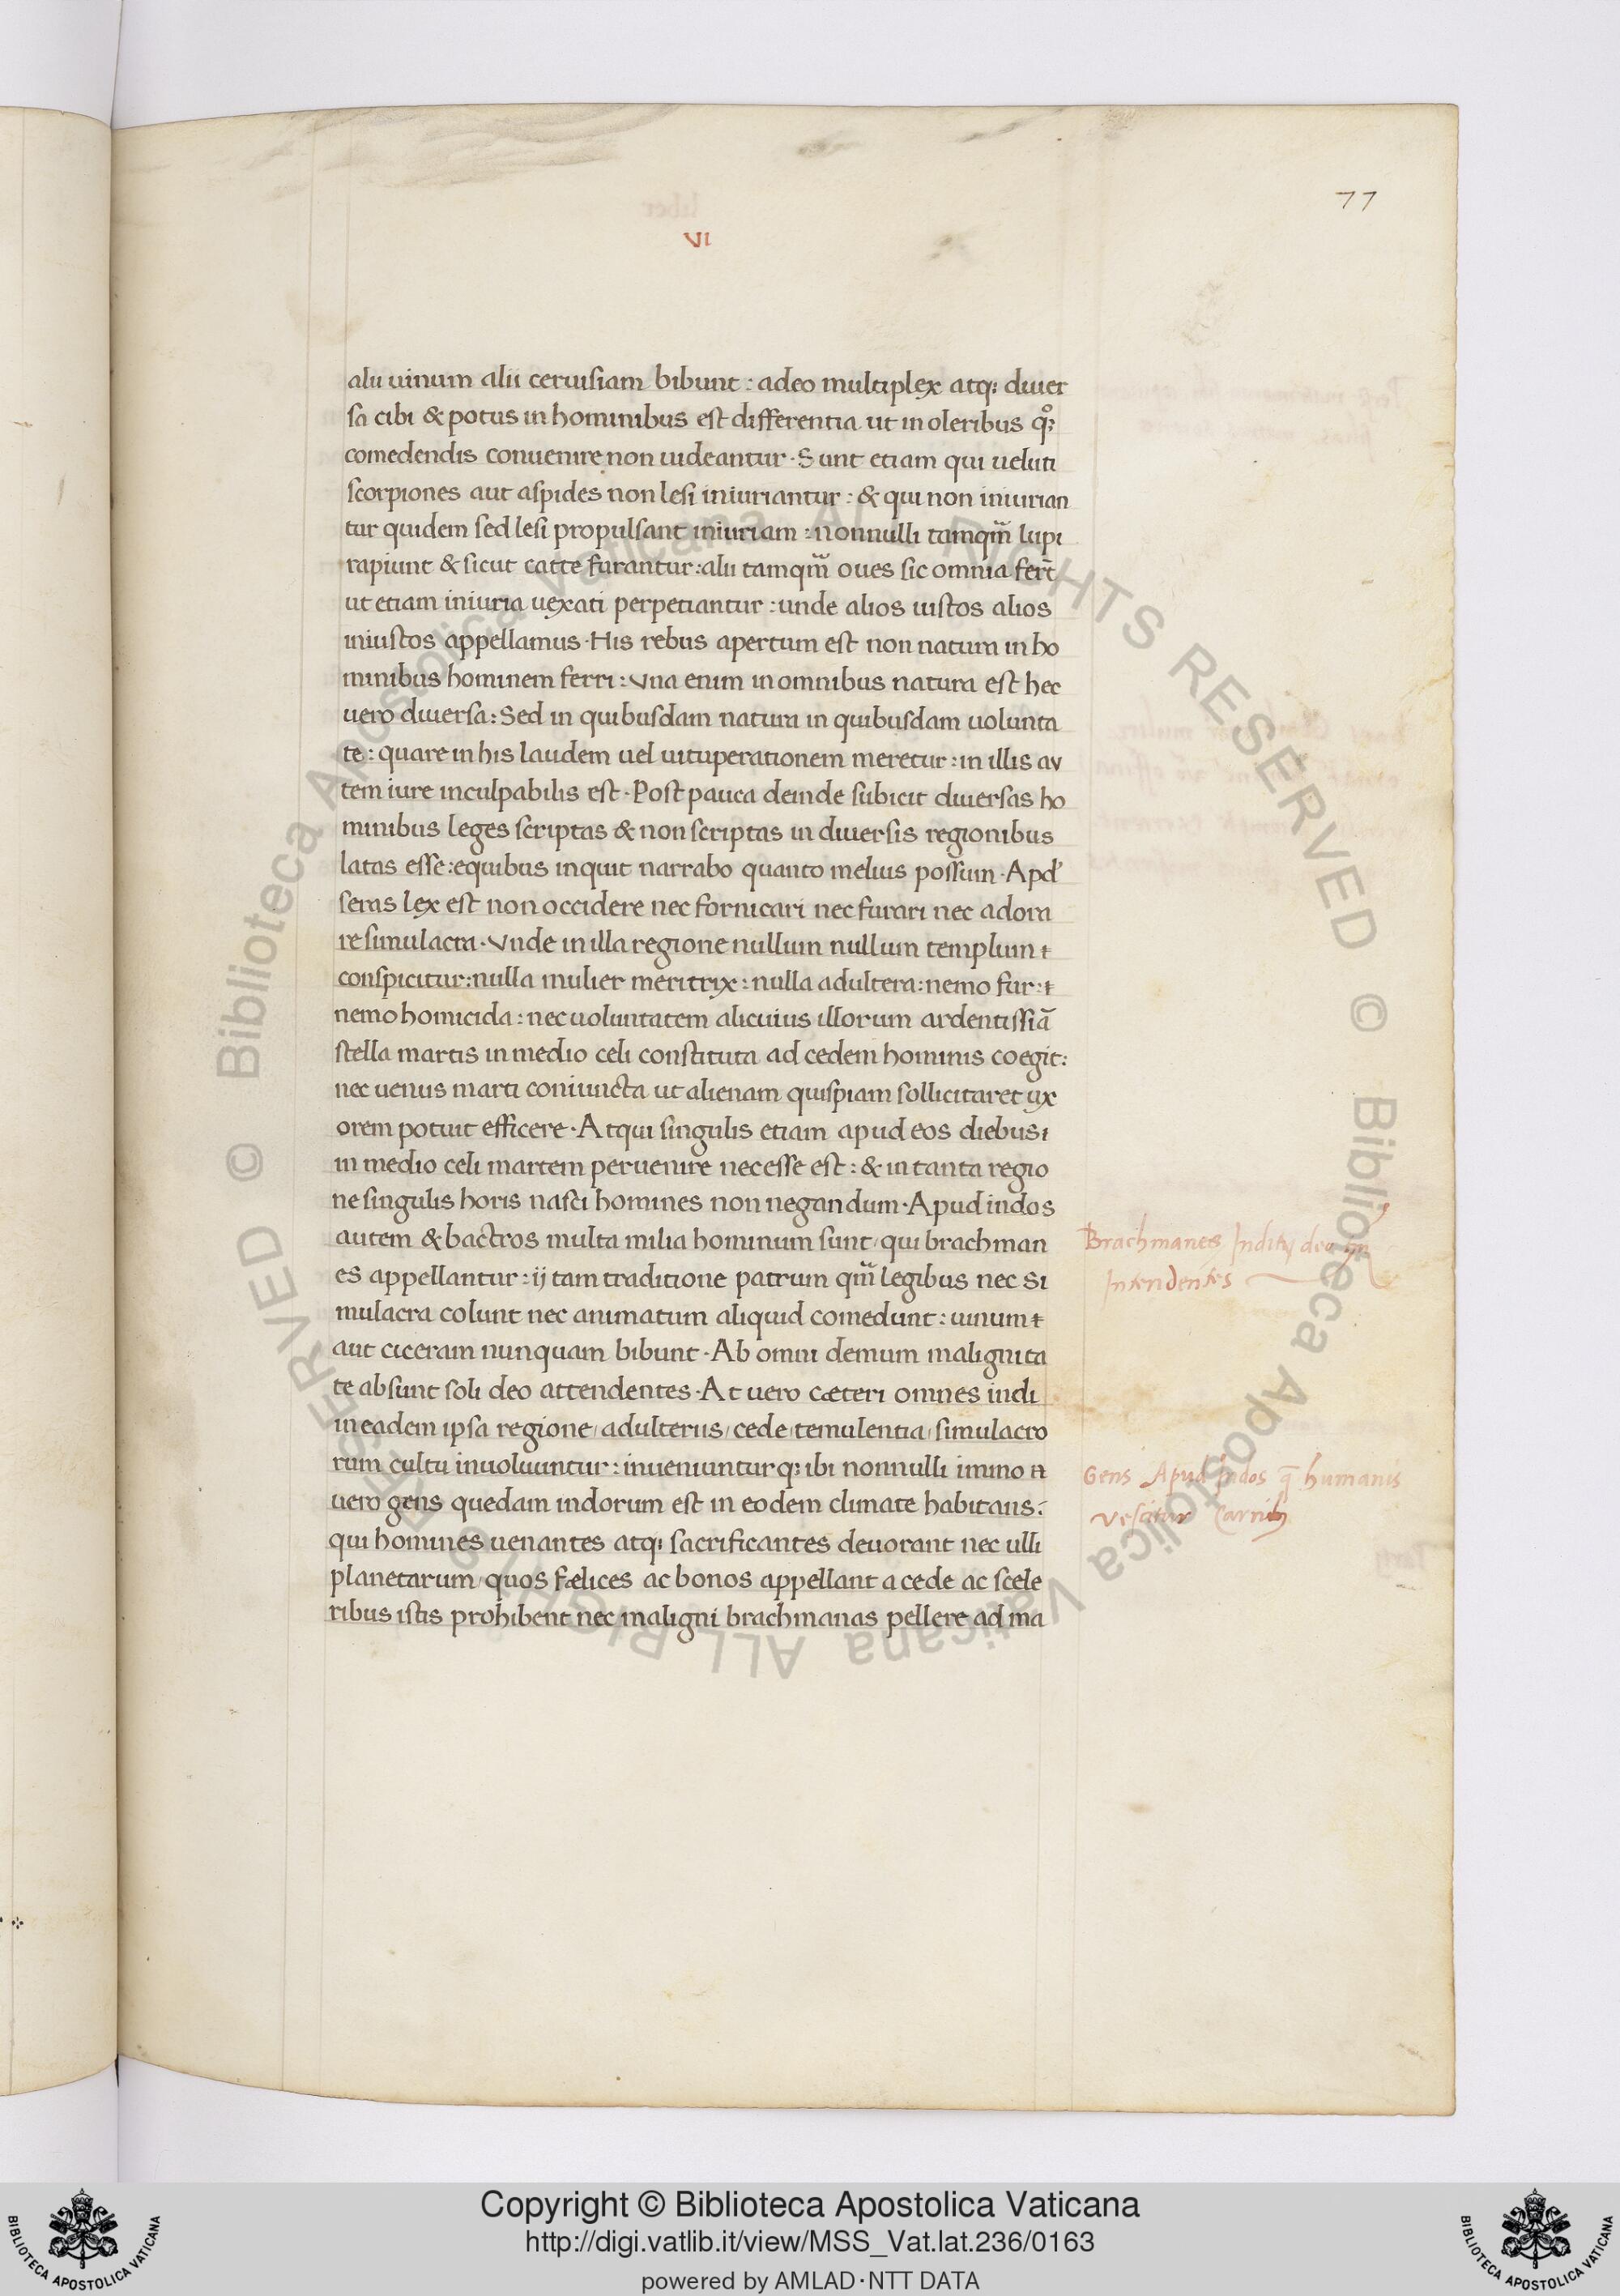 77
VI
alii uinum alii ceruisiam bibunt : adeo multiplex atq; diuer
sa cibi & potus in hominibus est differentia ut in oleribus qͦ;
comedendis conuenire non uideantur · Sunt etiam qui ueluti
scorpiones aut aspides non lesi iniuriantur : & qui non iniurian
tur quidem sed lesi propulsant iniuriam : nonnulli tamqm̃ lupi
rapiunt & sicut catte furantur : alii tamqm̃ oues sic omnia fer̃t
ut etiam iniuria uexati perpetiantur : unde alios iustos alios
iniustos appellamus · His rebus apertum est non natura in ho
minibus hominem ferri : Vna enim in omnibus natura est hec
uero diuersa : Sed in quibusdam natura in quibusdam uolunta
te : quare in his laudem uel uituperationem meretur : in illis au
tem iure inculpabilis est · Post pauca deinde subicit diuersas ho
minibus leges scriptas & non scriptas in diuersis regionibus
latas esse : equibus inquit narrabo quanto melius possum · Apd'
seras lex est non occidere nec fornicari nec furari nec adora
re simulacra · Vnde in illa regione nullum nullum templum
conspicitur : nulla mulier meritrix : nulla adultera : nemo fur :
nemo homicida : nec uoluntatem alicuius illorum ardentissiã
stella martis in medio celi constituta ad cedem hominis coegit :
nec uenus marti coniuncta ut alienam quispiam sollicitaret ux
orem potuit efficere · Atqui singulis etiam apud eos diebus
in medio celi martem peruenire necesse est : & in tanta regio
ne singulis horis nasci homines non negandum · Apud indos
autem & bactros multa milia hominum sunt / qui brachman
es appellantur : ij tam traditione patrum qm̃ legibus nec si
mulacra colunt nec animatum aliquid comedunt : uinum
aut ciceram nunquam bibunt · Ab omni demum malignita
te absunt soli deo attendentes · At uero cæteri omnes indi
in eadem ipsa regione / adulteriis / cede / temulentia / simulacro
rum cultu inuoluuntur : inueniuntur q; ibi nonnulli immo
uero gens quedam indorum est in eodem climate habitans :
qui homines uenantes atq; sacrificantes deuorant nec ulli
planetarum / quos fælices ac bonos appellant a cede ac scele
ribus istis prohibent nec maligni brachmanas pellere ad ma
Brachmanes
Intendentes
Gens Apud Indos q̃ humanis
vescitur Carnib;
Copyright © Biblioteca Apostolica Vaticana
http://digi.vatlib.it/view/MSS_Vat.lat.236/0163
powered by AMLAD·NTT DATA
BIBLIOTECA APOSTOLICA VATICANA
BIBLIOTECA APOSTOLICA VATICANA
© Biblioteca Apostolica Vaticana ALL RIGHTS RESERVED © Biblioteca Apostolica Vaticana ALL RIGHTS RESERVED